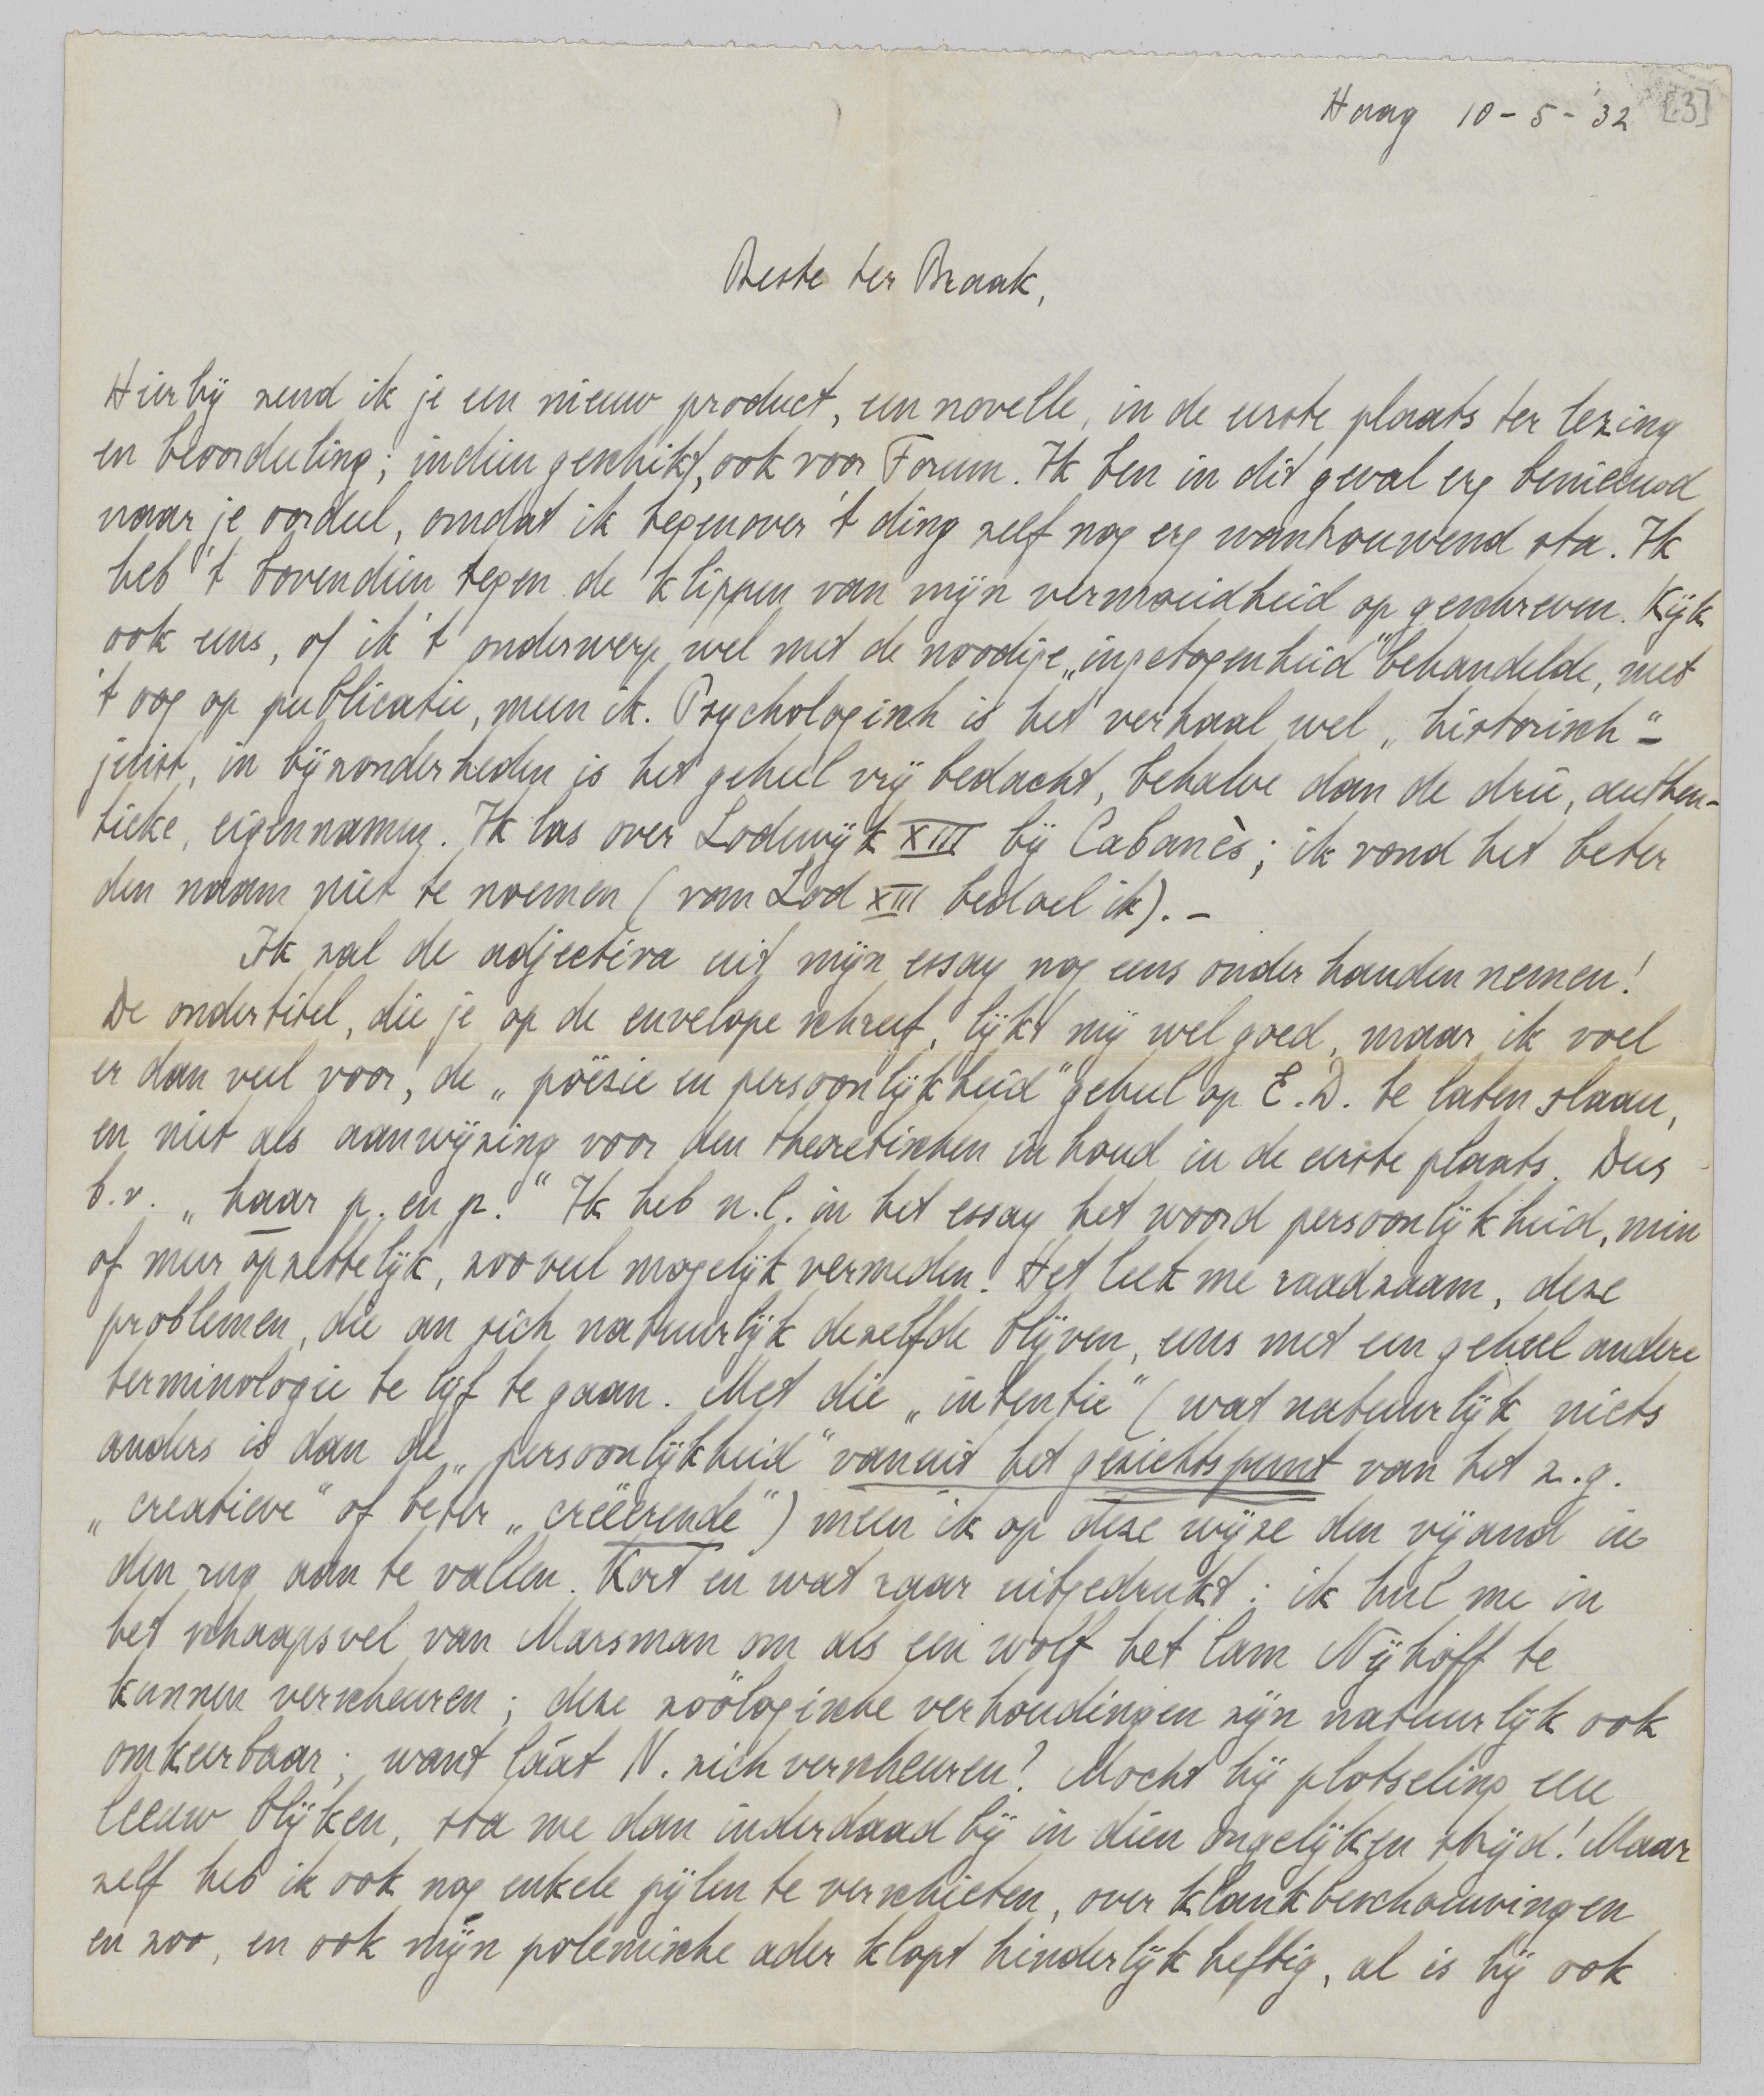 Haag 10-5-'32 [3]
Beste ter Braak,
Hierbij zend ik je een nieuw product, een novelle, in de eerste plaats ter lezing
en beoordeeling; indien geschikt, ook voor Forum. Ik ben in dit geval erg benieuwd
naar je oordeel, omdat ik tegenover 't ding zelf nog erg wantrouwend sta. Ik
heb 't bovendien tegen de klippen van mijn vermoeidheid op geschreven. Kijk
ook eens, of ik 't onderwerp wel met de noodige „ingetogenheid" behandelde, met
't oog op publicatie, meen ik. Psychologisch is het verhaal wel „historisch"-
juist, in bijzonderheden is het geheel vrij bedacht, behalve dan de drie, authen-
tieke, eigennamen. Ik las over Lodewijk XIII bij Cabanès; ik vond het beter
den naam niet te noemen (van Lod XIII bedoel ik). -
Ik zal de adjectiva uit mijn essay nog eens onder handen nemen!
De ondertitel, die je op de envelope schreef, lijkt mij wel goed, maar ik voel
er dan veel voor, de „poëzie en persoonlijkheid" geheel op E.D. te laten slaan,
en niet als aanwijzing voor den theoretischen inhoud in de eerste plaats. Dus
b.v. „haar p. en p." Ik heb n.l. in het essay het woord persoonlijkheid, min
of meer opzettelijk, zooveel mogelijk vermeden. Het leek me raadzaam, deze
problemen, die an sich natuurlijk dezelfde blijven, eens met een geheel andere
terminologie te lijf te gaan. Met die „intentie" (wat natuurlijk niets
anders is dan de „persoonlijkheid" vanuit het gezichtspunt van het z.g.
„creatieve" of beter „creëerende") meen ik op deze wijze den vijand in
den rug aan te vallen. Kort en wat raar uitgedrukt: ik hul me in
het schaapsvel van Marsman om als een wolf het lam Nijhoff te
kunnen verscheuren; deze zoölogische verhoudingen zijn natuurlijk ook
omkeerbaar; want láát N. zich verscheuren? Mocht hij plotseling een
leeuw blijken, sta me dan inderdaad bij in dien ongelijken strijd! Maar
zelf heb ik ook nog enkele pijlen te verschieten, over klankbeschouwingen
en zoo, en ook mijn polemische ader klopt hinderlijk heftig, al is hij ook